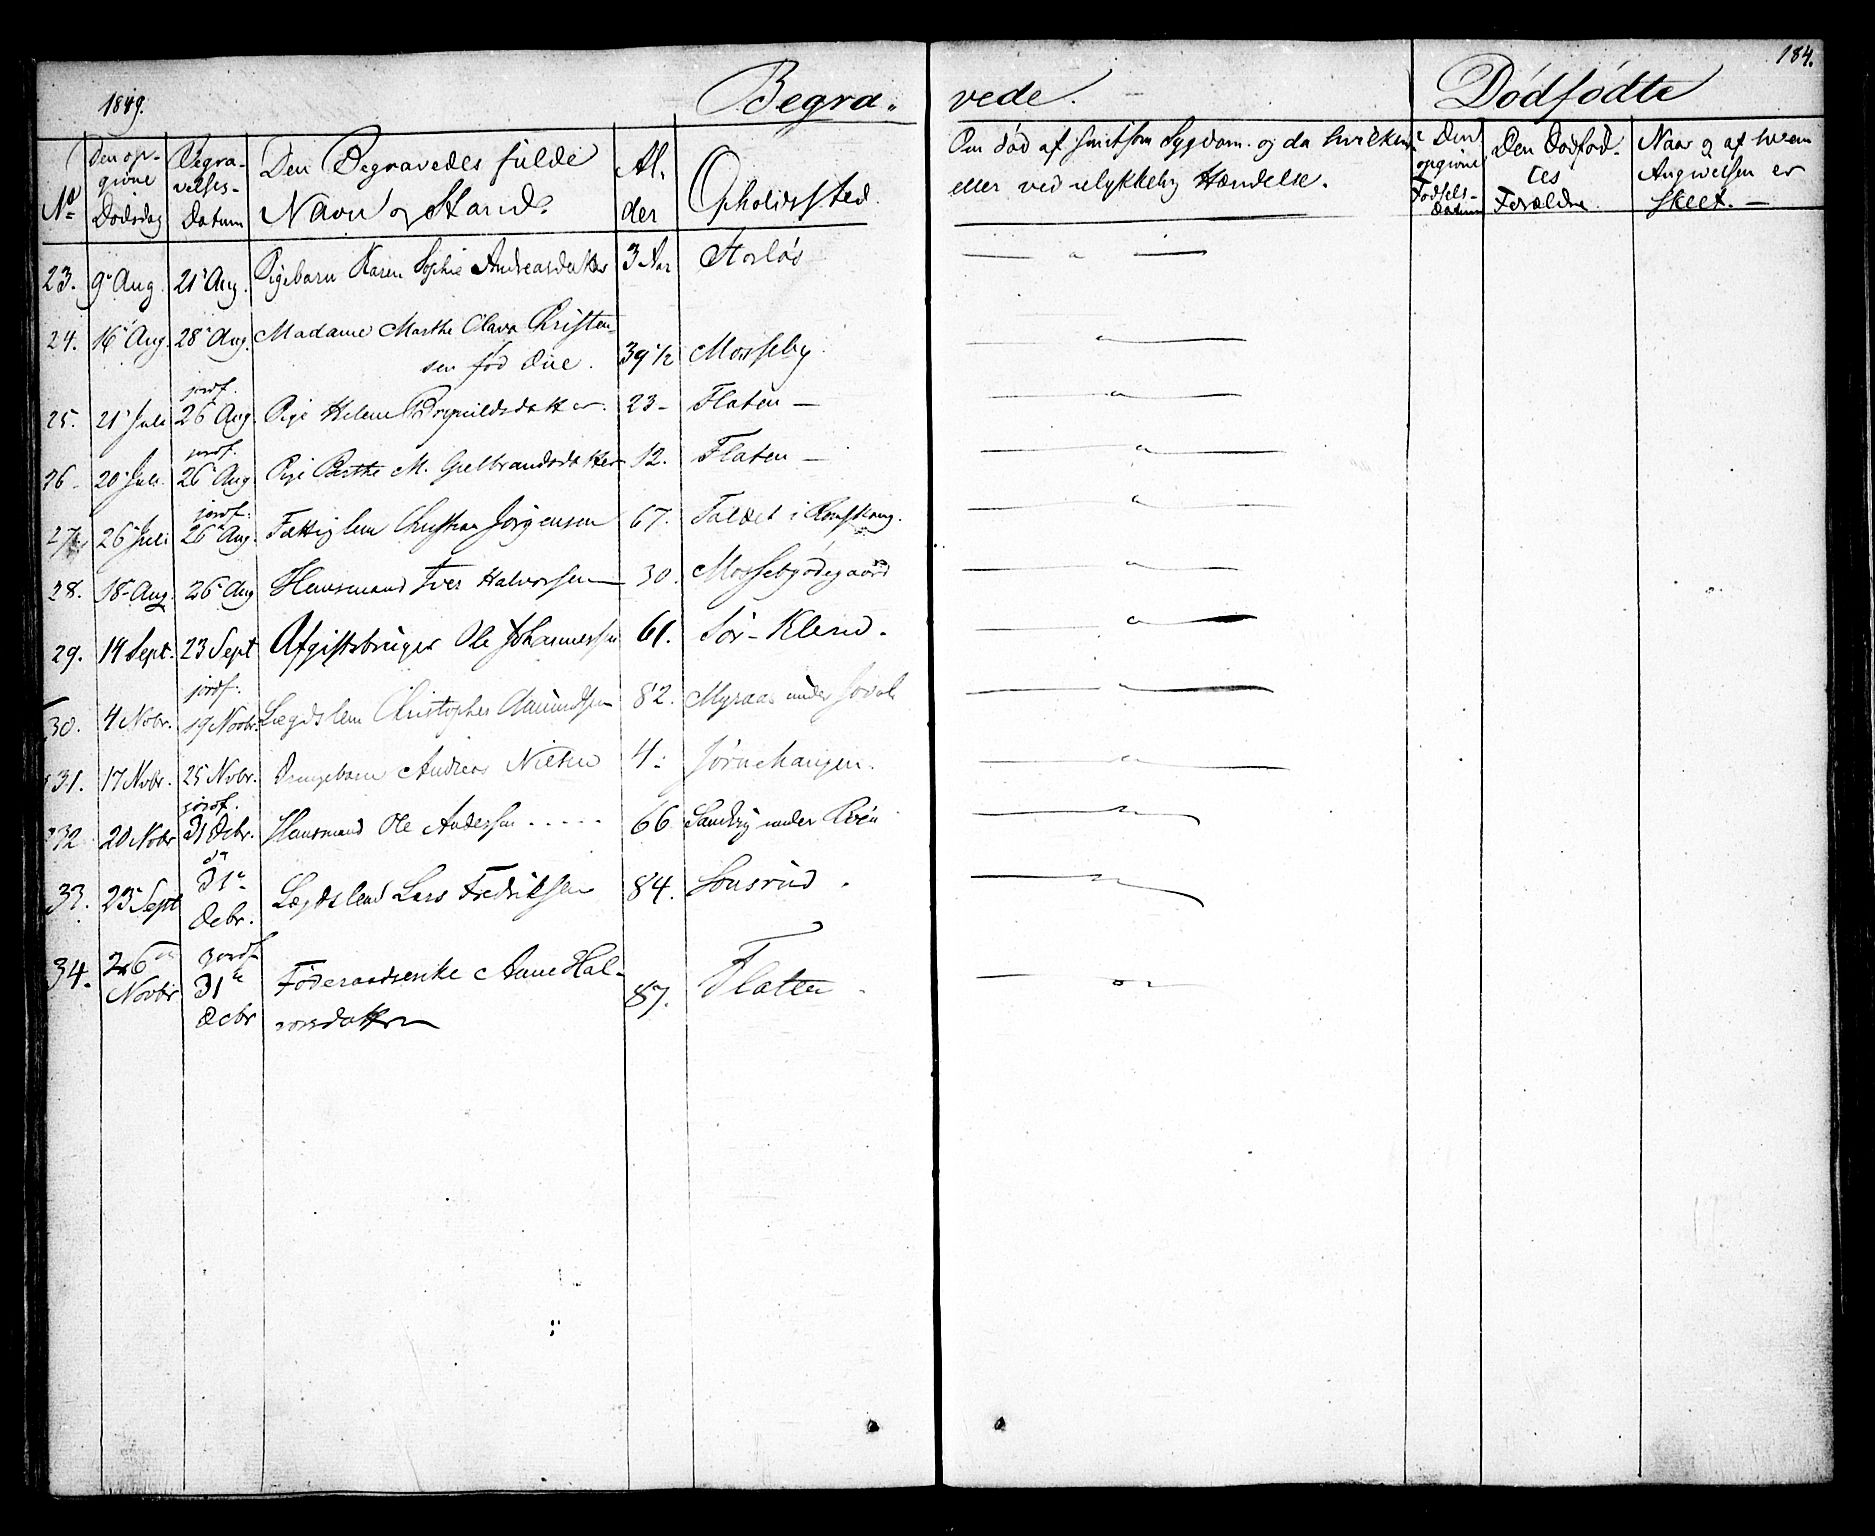 184.
1849. Begra- vede. Dødfødte
No Den opgivne Dødsdag Begravelses-Datum Den Begravedes fulde Navn og Stand. Alder Opholdssted. Om død af smitsom Sygdom og da hvilken eller ved ulykkelig Hændelse. Den opgivne Fødsels-Datum Den Dødfødtes Forældre Naar og af hvem Angivelsen er skeet. —
23. 9 Aug. 21 Aug. Pigebarn Karen Sophie Andreasdatter 3 Aar Storløs
24. 16 Aug. 28 Aug. Madame Marthe Olava Christen-
sen fød Due. 39 1/2 Mosseby
jordf.
25. 21 Juli 26 Aug. Pige Helene Brynildsdatter. 23 - Flaten —
jordf.
26. 20 Juli 26 Aug Pige Berthe M. Gulbrandsdatter 12. Flaten —
jordf.
27. 26 Juli 26 Aug. Fattiglem Christian Jørgensen 67. Taldet i
28. 18 Aug. 26 Aug Huusmand Iver Halvorsen 30. Mossebyødegaard
29. 14 Sept. 23 Sept Afgiftsbruger Ole Johannessen 61. Sör-Klend.
jordf.
30. 4 Nobr. 19 Novbr. Lægdslem Christopher Amundsen 82. Myraas under
31. 17 Nobr. 25 Nobr. Drengebarn Andreas Nielsen 4. Jörnehaugen.
jordf.
32 20 Nobr 31 Debr. Huusmand Ole Andersen ..... 66 Sandvig under
33. 23 Sept 31 Debr. Lægdslem Lars Fredriksen 84. Sonsrud.
jordf
34. 26 Novbr 31 Debr Føderaadsenke Anne Hal-
vorsdatter 87. Flaten